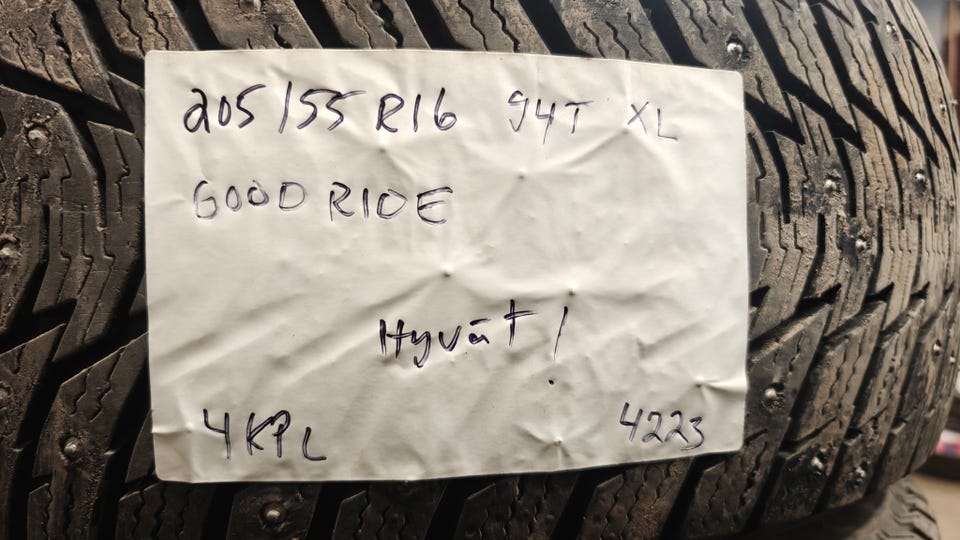 205/55 R16 94T XL
GOOD RIDE
Hyvät!
4 KPL 4223